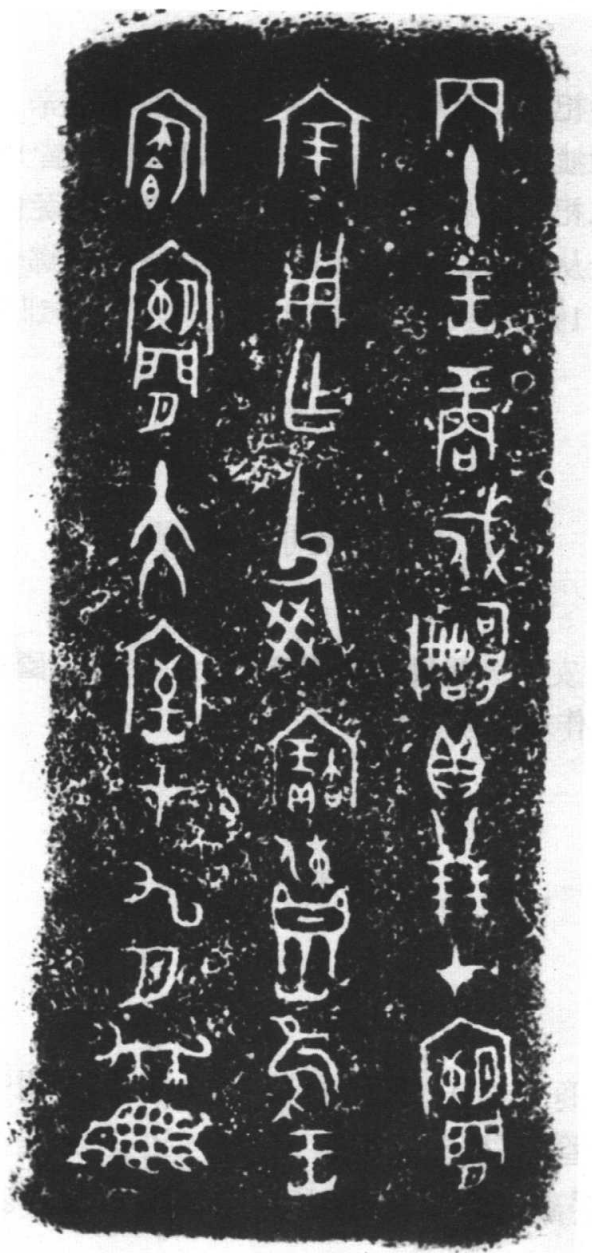 丙午王商戍嗣子貝廿朋才闌
宗用乍父癸寶隹王
闌大室才九月犬魚